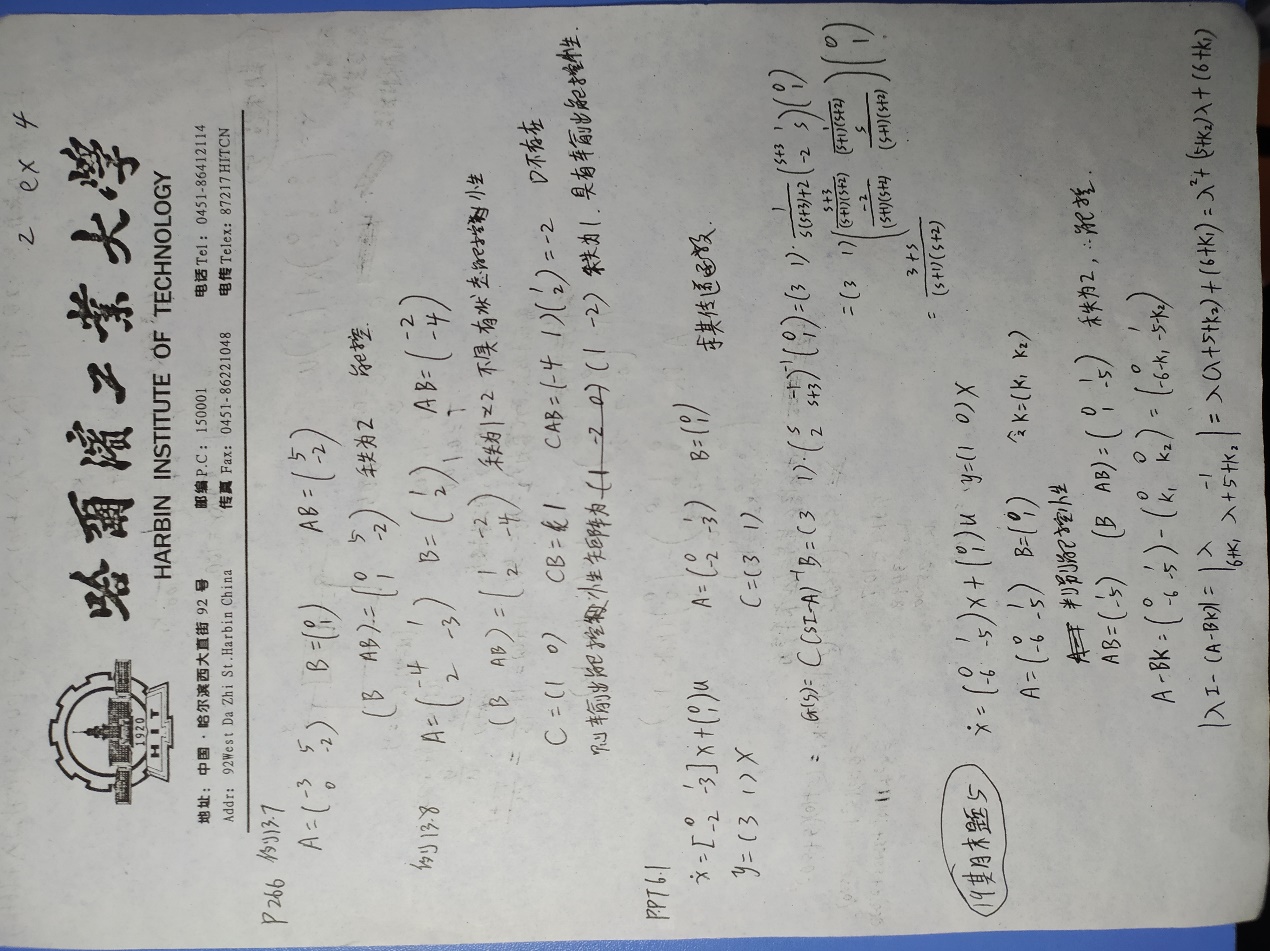 2 ex 4
哈爾濱工業大學
HARBIN INSTITUTE OF TECHNOLOGY
1920
HIT
地址：中国·哈尔滨西大直街 92 号 邮编 P.C：150001 电话 Tel：0451-86412114
Addr: 92West Da Zhi St.Harbin China 传真 Fax: 0451-86221048 电传 Telex: 87217HITCN
P266 例13.7
A=(-3 5; 0 -2) B=(0; 1) AB=(5; -2)
(B AB)=(0 5; 1 -2) 秩为2 能控.
例13.8 A=(-4 1; 2 -3) B=(1; 2) AB=(-2; -4)
(B AB)=(1 -2; 2 -4) 秩为1≠2 不具有状态能控性
C=(1 0) CB=1 CAB=(-4 1)(1; 2)=-2 D不存在
则输出能控性矩阵为 (1 -2 0) (1 -2) 秩为1. 具有输出能控性.
PPT6.1
ẋ=[0 1; -2 -3]x+(0; 1)u A=(0 1; -2 -3) B=(0; 1) 求其传递函数.
y=(3 1)x C=(3 1)
G(s)=C(sI-A)⁻¹B=(3 1)·(s -1; 2 s+3)⁻¹(0; 1)=(3 1)·1/(s(s+3)+2)(s+3 1; -2 s)(0; 1)
=(3 1)((s+3)/((s+1)(s+2)) 1/((s+1)(s+2)); -2/((s+1)(s+2)) s/((s+1)(s+2)))(0; 1)
=(3+s)/((s+1)(s+2))
19期末题5 ẋ=(0 1; -6 -5)x+(0; 1)u y=(1 0)x
A=(0 1; -6 -5) B=(0; 1) 令K=(k₁ k₂)
判别能控性
AB=(1; -5) (B AB)=(0 1; 1 -5) 秩为2, ∴能控.
A-BK=(0 1; -6 -5)-(0 0; k₁ k₂)=(0 1; -6-k₁ -5-k₂)
|λI-(A-BK)|=|λ -1; 6+k₁ λ+5+k₂|=λ(λ+5+k₂)+(6+k₁)=λ²+(5+k₂)λ+(6+k₁)